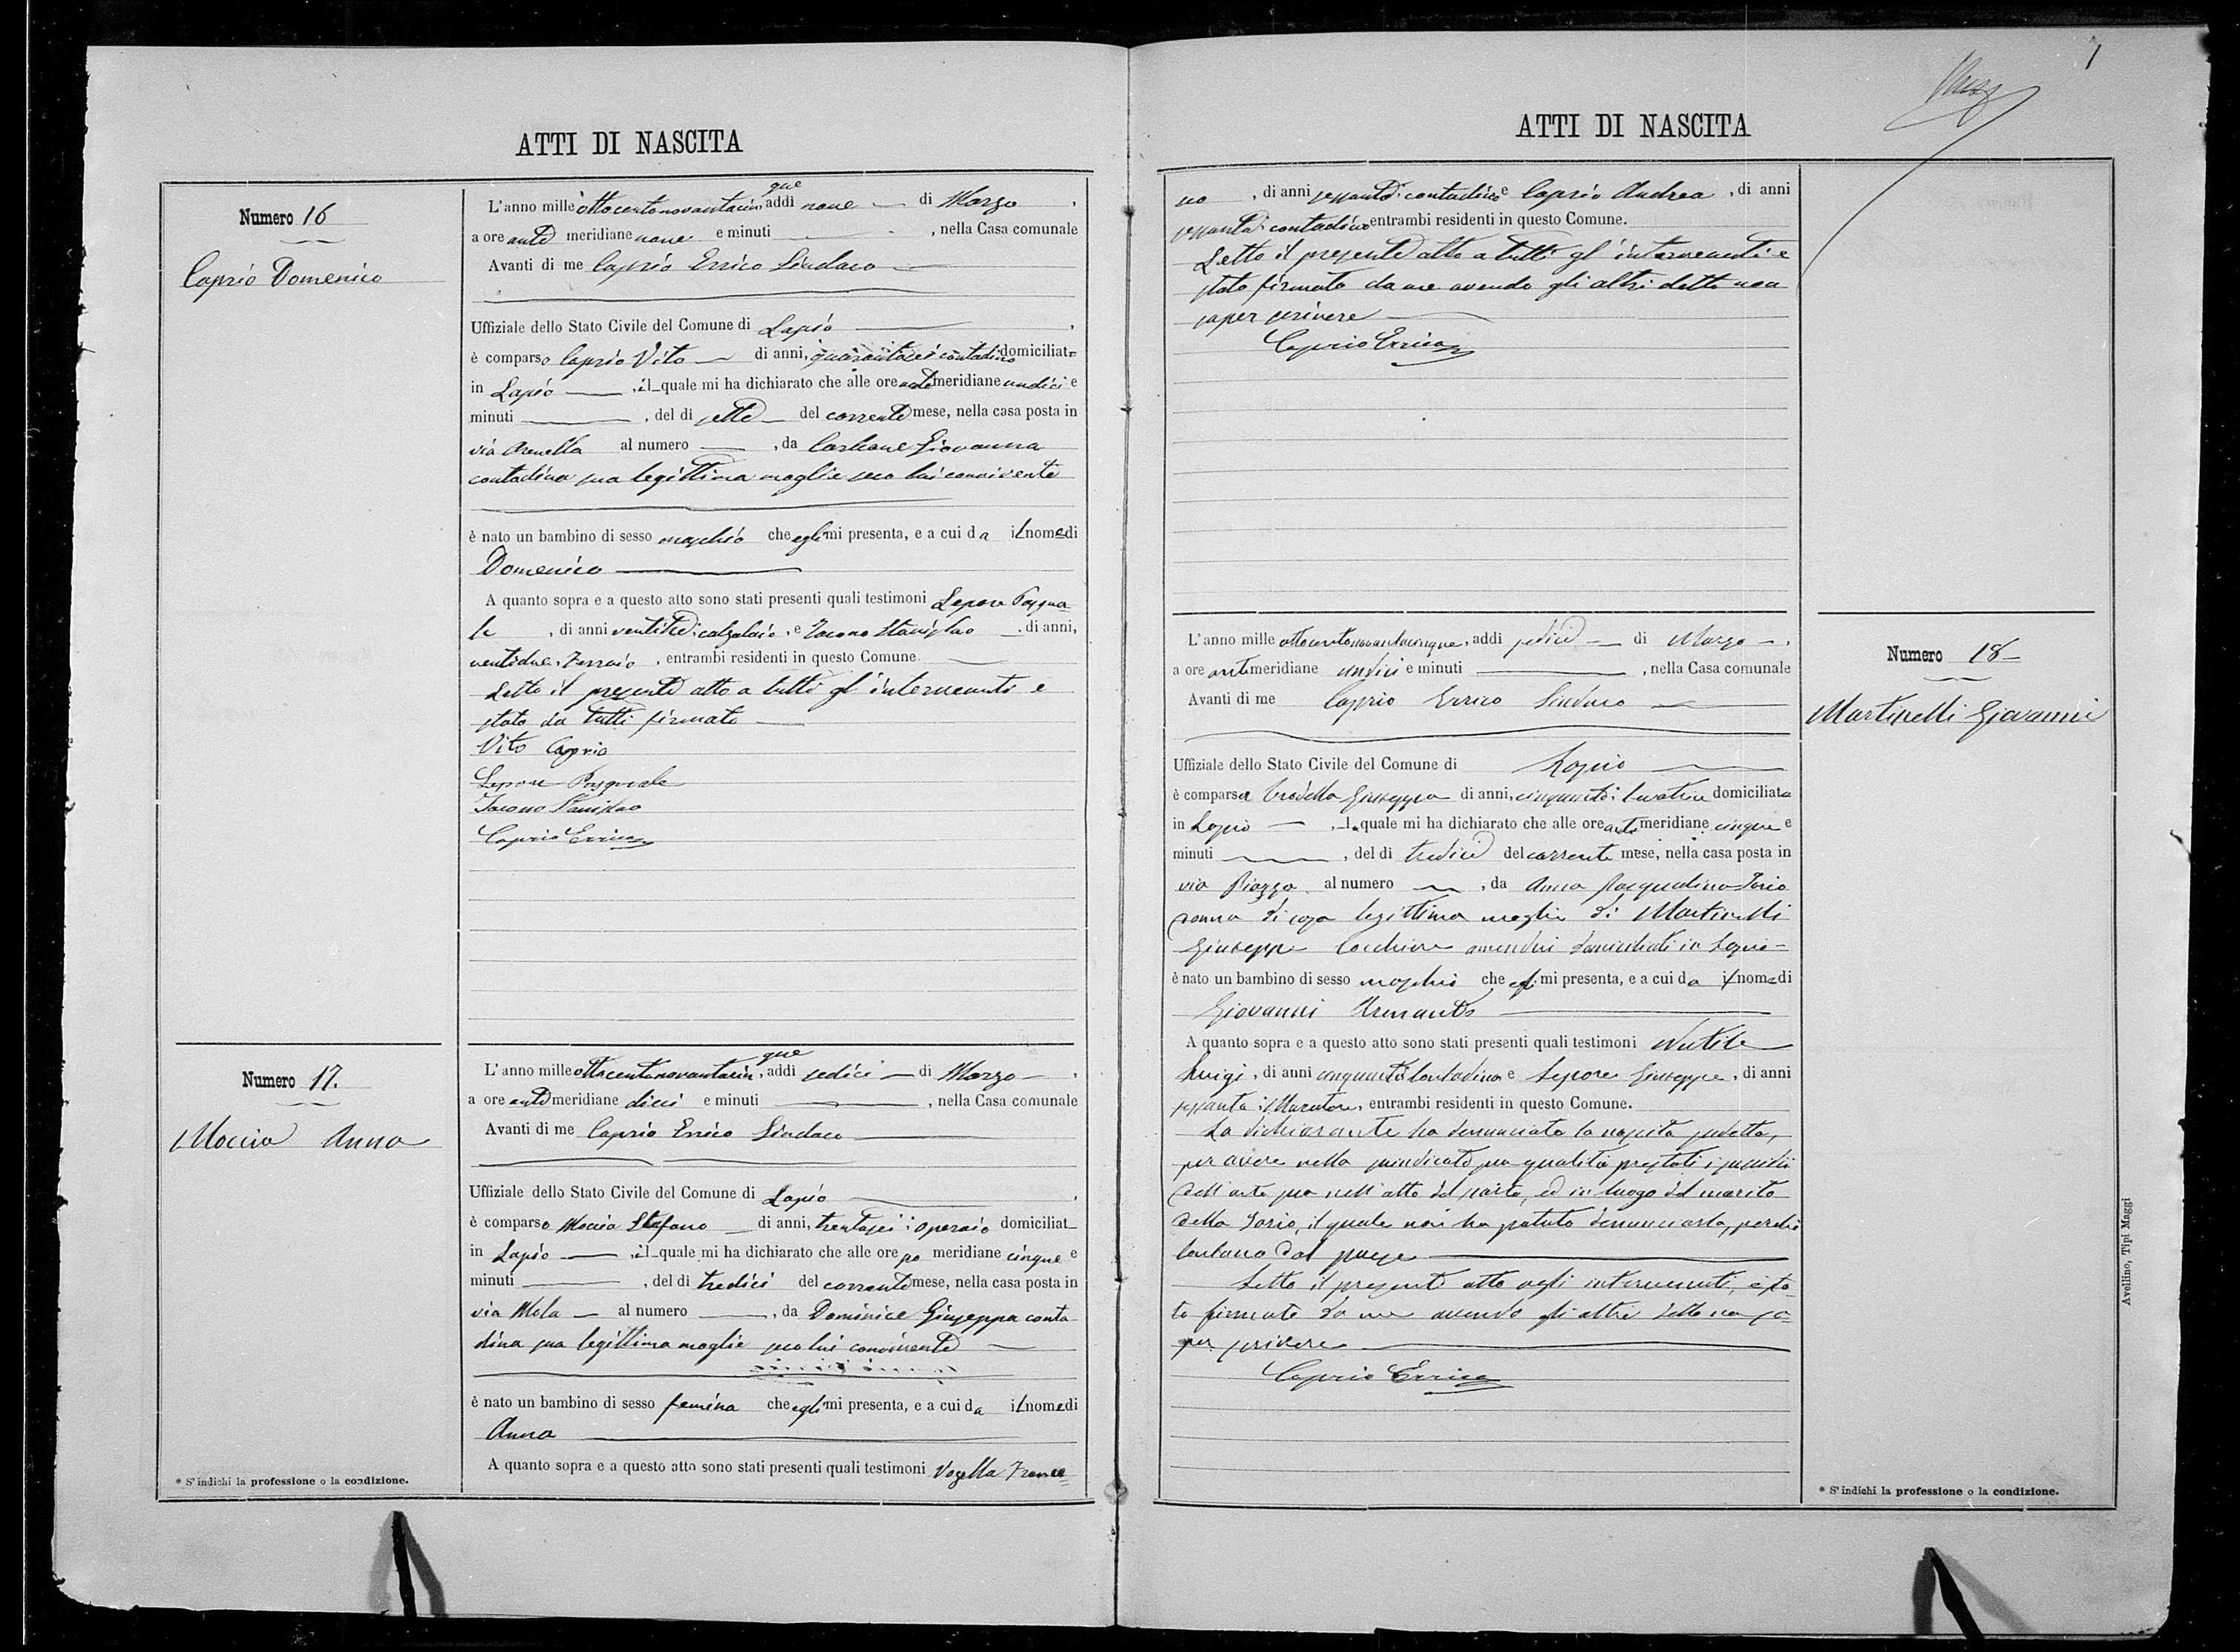 ATTI DI NASCITA
Numero 16
Caprio Domenico
L'anno mille ottocentonovantacinque, addì nove di Marzo,
a ore anti meridiane nove e minuti , nella Casa comunale
Avanti di me Caprio Errico Sindaco
Uffiziale dello Stato Civile del Comune di Lapio,
è comparso Caprio Vito di anni, quarantasei contadino domiciliat
in Lapio, il quale mi ha dichiarato che alle ore anti meridiane undici e
minuti , del dì sette del corrente mese, nella casa posta in
via Arenella al numero , da Carbone Giovanna
contadina sua legittima moglie seco lui convivente
è nato un bambino di sesso maschio che egli mi presenta, e a cui da il nome di
Domenico
A quanto sopra e a questo atto sono stati presenti quali testimoni Lepore Pasqua
le, di anni ventitre: calzolaio, e Iacono Stanislao, di anni,
ventidue, Ferraio, entrambi residenti in questo Comune.
Letto il presente atto a tutti gl'intervenuti e
stato da tutti firmato
Vito Caprio
Lepore Pasquale
Iacono Stanislao
Caprio Errico
Numero 17.
Moccia Anna
L'anno mille ottocentonovantacinque, addì sedici di Marzo,
a ore anti meridiane dieci e minuti , nella Casa comunale
Avanti di me Caprio Errico Sindaco
Uffiziale dello Stato Civile del Comune di Lapio,
è comparso Moccia Stefano di anni, trentasei: operaio domiciliat
in Lapio, il quale mi ha dichiarato che alle ore po meridiane cinque e
minuti , del dì tredici del corrente mese, nella casa posta in
via Mola al numero , da Dominice Giuseppa conta
dina sua legittima moglie seco lui convivente
è nato un bambino di sesso femina che egli mi presenta, e a cui da il nome di
Anna
A quanto sopra e a questo atto sono stati presenti quali testimoni Vozella France
* S'indichi la professione o la condizione.
1
ATTI DI NASCITA
no, di anni sessanta: contadino e Caprio Andrea, di anni
sessanta: contadino entrambi residenti in questo Comune.
Letto il presente atto a tutti gl'intervenuti e
stato firmato da me avendo gli altri detto non
saper scrivere
Caprio Errico
Numero 18
Martinelli Giovanni
L'anno mille ottocentonovantacinque, addì sedici di Marzo,
a ore anti meridiane undici e minuti , nella Casa comunale
Avanti di me Caprio Errico Sindaco
Uffiziale dello Stato Civile del Comune di Lapio
è comparsa Giuseppa di anni, cinquanta: Levatrice domiciliata
in Lapio, la quale mi ha dichiarato che alle ore anti meridiane cinque e
minuti , del dì tredici del corrente mese, nella casa posta in
via Piazza al numero , da Anna Pasqualina Iorio
donna di casa legittima moglie di Martinelli
Giuseppe Cocchiere amendui domiciliati in Lapio
è nato un bambino di sesso maschio che mi presenta, e a cui da il nome di
Giovanni Armando
A quanto sopra e a questo atto sono stati presenti quali testimoni Nutile
Luigi, di anni cinquanta Contadino e Lepore Giuseppe, di anni
sessanta: Muratore, entrambi residenti in questo Comune.
La dichiarante ha denunciata la nascita sudetta,
per avere nella suindicata sua qualità prestati i sussidii
dell'arte sua nell'atto del parto, ed in luogo del marito
della Iorio, il quale non ha potuto denunciarla, perchè
lontano dal paese
Letto il presente atto agli intervenuti, è sta
to firmato da me avendo gli altri detto non sa
per scrivere
Caprio Errico
* S'indichi la professione o la condizione.
Avellino, Tipi Maggi